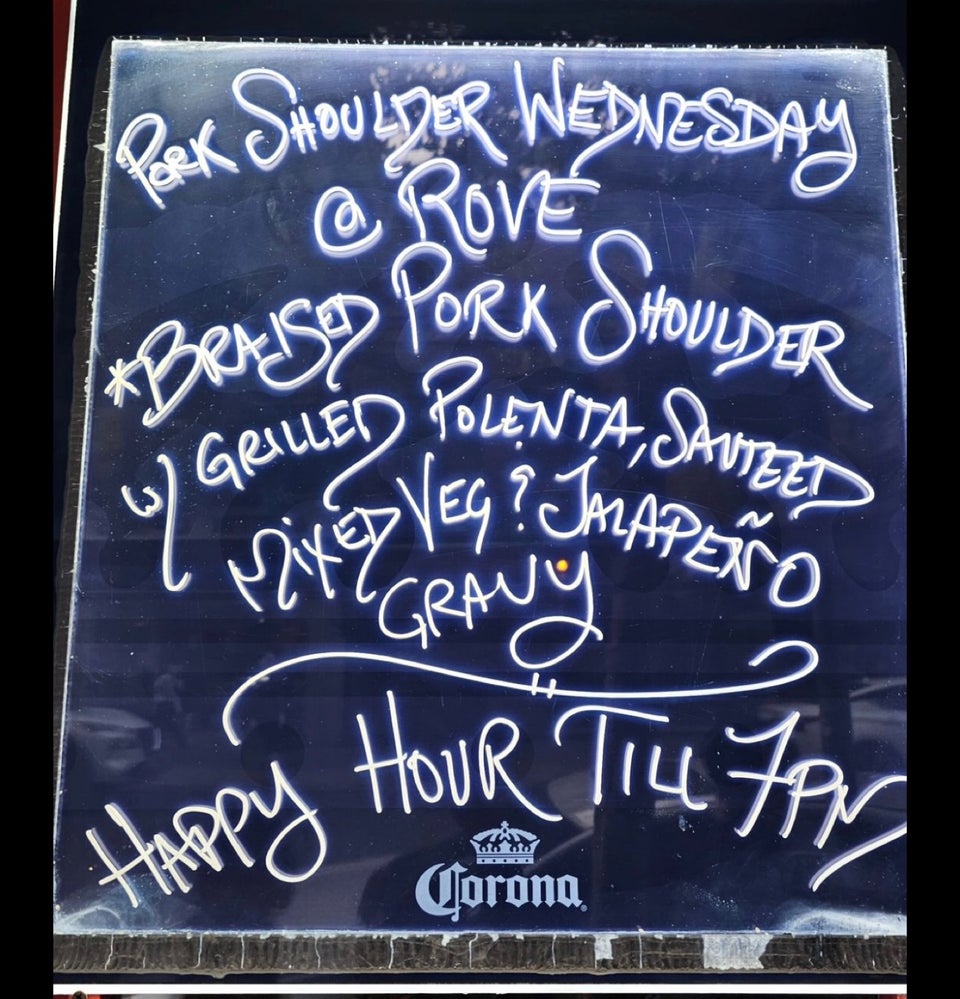 PORK SHOULDER WEDNESDAY
@ ROVE
*BRAISED PORK SHOULDER
w/ GRILLED POLENTA, SAUTEED
MIXED VEG ? JALAPEÑO
GRAVY
HAPPY HOUR TILL 7PM
Corona